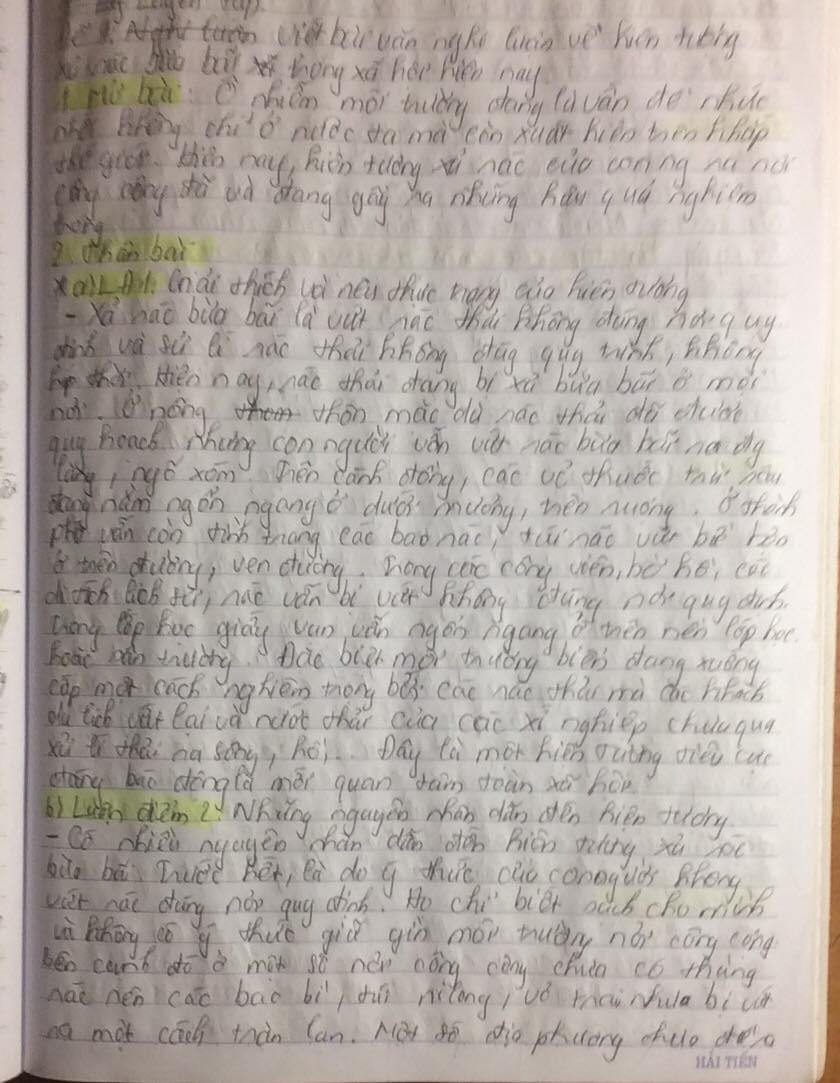 Luyện tập
Đề 1: Nghị luận Viết bài văn nghị luận về hiện tượng
xả rác bừa bãi trong xã hội hiện nay.
1. Mở bài: Ô nhiễm môi trường đang là vấn đề nhức
nhối không chỉ ở nước ta mà còn xuất hiện trên khắp
thế giới. Hiện nay, hiện tượng xả rác của con ng ra nơi
công cộng đã và đang gây ra những hậu quả nghiêm
trọng
2. Thân bài
* a) LĐ1: Giải thích và nêu thực trạng của hiện tượng
- Xả rác bừa bãi là vứt rác thải không đúng nơi quy
định và xử lí rác thải không đúg quy trình, không
hợp thời. Hiện nay, rác thải đang bị xả bừa bãi ở mọi
nơi. Ở nông thôn mặc dù rác thải đã được
quy hoạch nhưng con người vẫn vứt rác bừa bãi ra đg
làng, ngõ xóm. Trên cánh đồng, các vỏ thuốc trừ sâu
đang nằm ngổn ngang ở dưới mương, trên ruộng. Ở thành
phố vẫn còn tình trạng các bao rác, túi rác vứt bừa
ở trên đường, ven đường. Trong các công viên, bờ hồ, các
di tích lịch sử, rác vẫn bị vứt không đúng nơi quy định.
Trong lớp học giấy vụn vẫn ngổn ngang ở trên nền lớp học
hoặc sân trường. Đặc biệt môi trường biển đang xuống
cấp một cách nghiêm trọng bởi các rác thải mà các khách
du lịch vứt lại và nước thải của các xí nghiệp chưa qua
xử lí thải ra sông, hồ,... Đây là một hiện tượng tiêu cực
đáng báo động là mối quan tâm toàn xã hội
b) Luận điểm 2: Những nguyên nhân dẫn đến hiện tượng.
- Có nhiều nguyên nhân dẫn đến hiện tượng xả rác
bừa bãi. Trước hết, là do ý thức của con người không
vứt rác đúng nơi quy định. Họ chỉ biết sạch cho mình
và không có ý thức giữ gìn môi trường nơi công cộng
bên cạnh đó ở một số nơi công cộng chưa có thùng
rác nên các bao bì, túi nilong, vỏ trai nhựa bị vứt
ra một cách tràn lan. Một số địa phương chưa
HẢI TIẾN